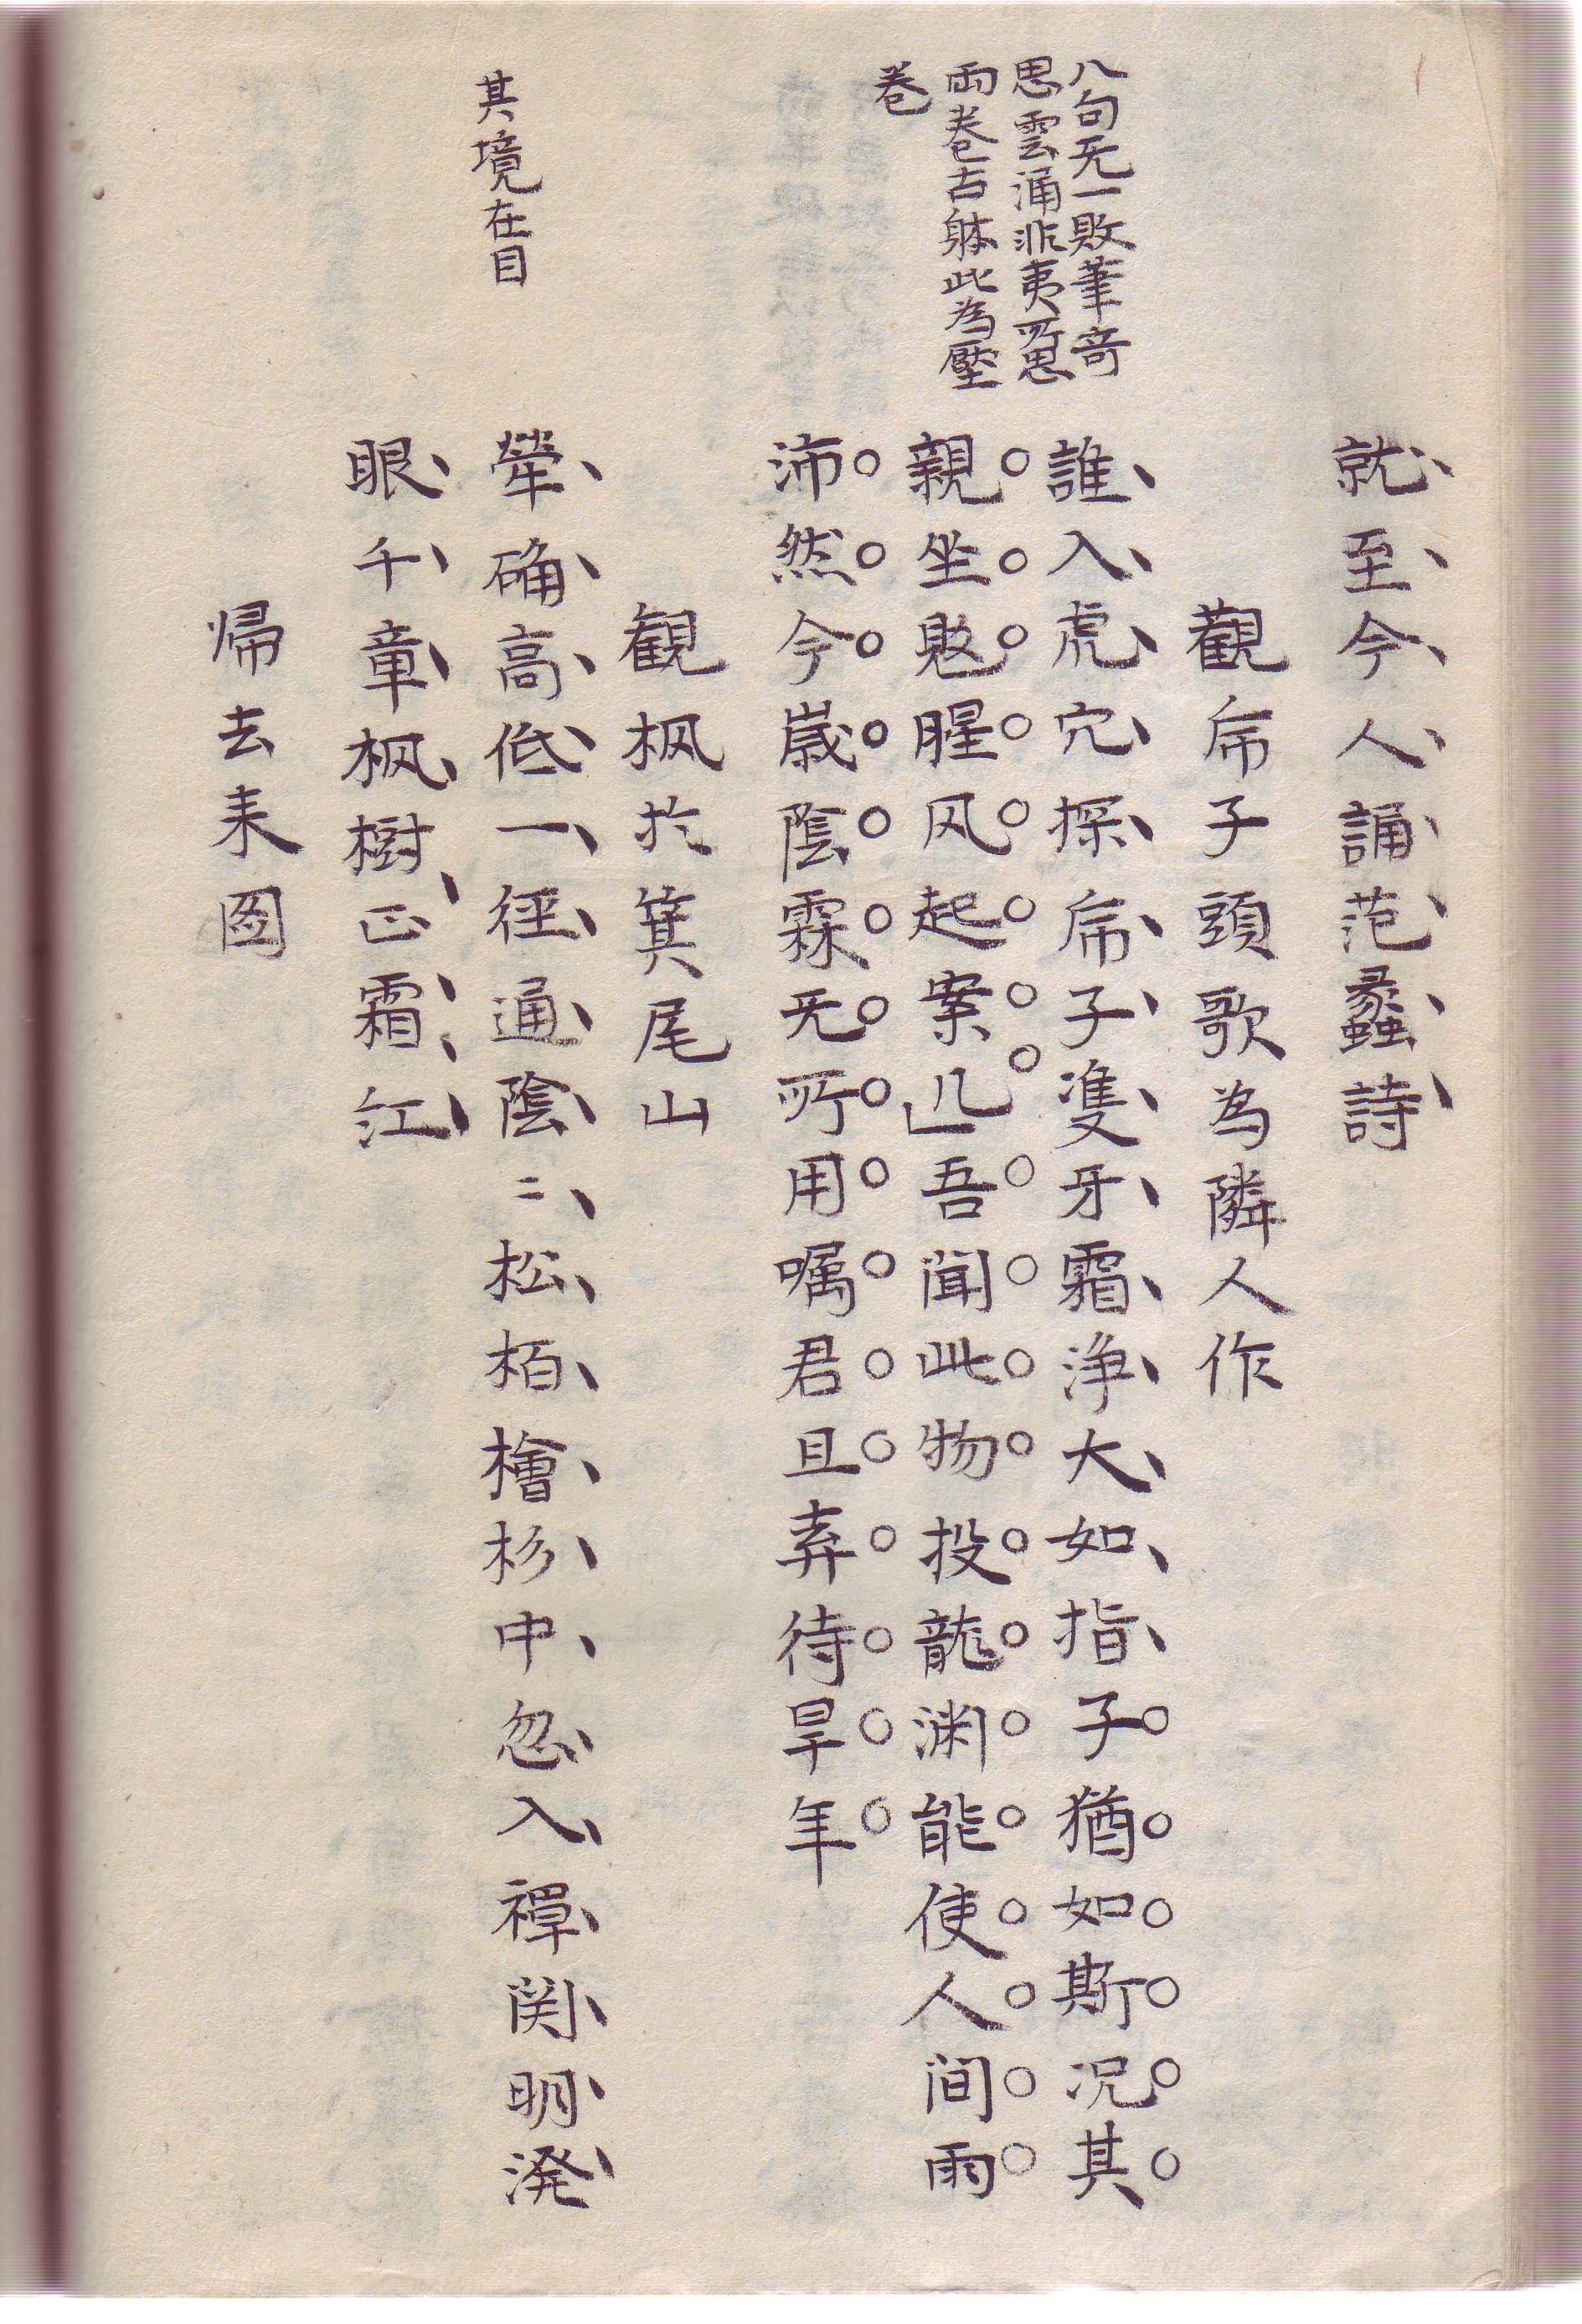 就至今人誦范蠡詩
觀虎子頭歌為隣人作
八句无一敗筆奇
思雲涌非夷所思
両巻古躰此為壓
巻
誰入虎穴探虎子隻牙霜浄大如指子猶如斯况其
親坐覩腥风起案几吾聞此物投龍渊能使人间雨
沛然今嵗陰霖无所用嘱君且弃待旱年
観枫於箕尾山
其境在目
犖确高低一径通陰〻松栢檜杉中忽入禪関明溌
眼千章枫樹正霜江
帰去耒図